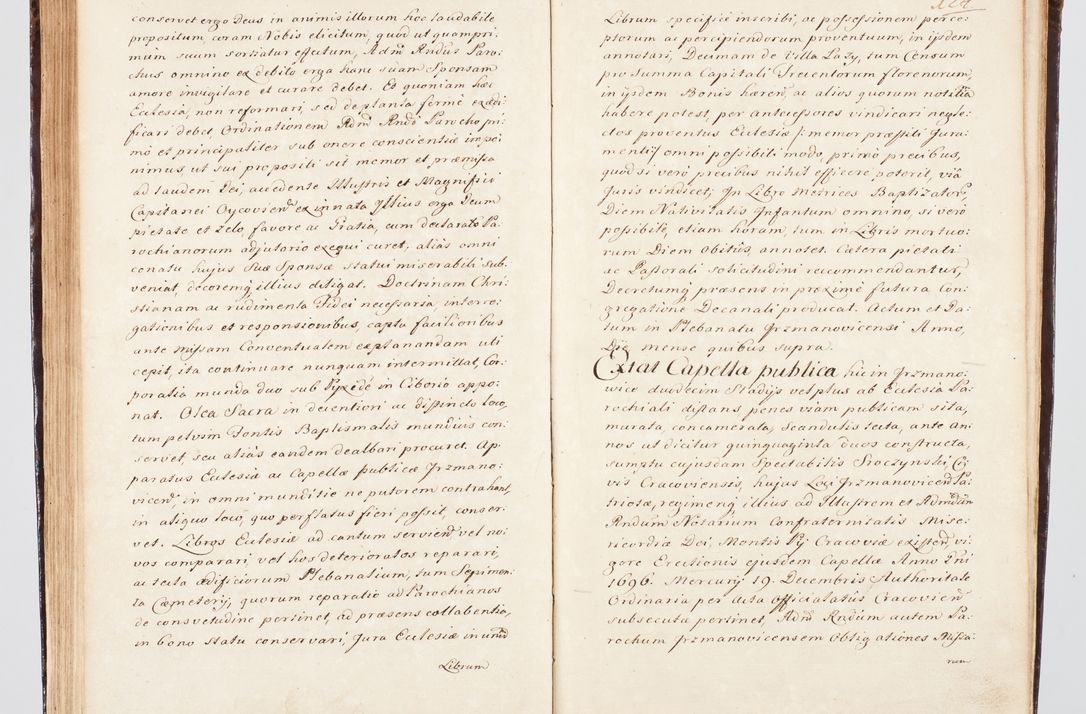 conservet ergo Deus in animis illorum hoc laudabile
propositum, coram Nobis elicitum, quod ut quampri:
mum suum sortiatur effectum, Adm̃ Rndus Paro:
chus omnino ex debito erga hanc suam Sponsam
amore invigilare et curare debet. Et quoniam hæc
Ecclesia, non reformari, sed de planta fermè exædi:
ficari debet Ordinationem Adm̃ Rndo Parocho pri:
mò et principaliter sub onere conscientiæ impo:
nimus, ut sui propositi sit memor et præmissa
ad laudem Dei, accedente Illustris et Magnifici
Capitanei Oycovien̄ ex innata Illius erga Deum
pietate et zelo, favore ac Gratia, cum declarato Pa:
rochianorum adjutorio exequi curet, aliàs omni
conatu hujus suæ Sponsæ statui miserabili sub:
veniat, decoremq̃ illius diligat. Doctrinam Chri:
stianam ac rudimenta Fidei necessaria, interro:
gationibus et responsionibus, captu facilioribus
ante Missam Conventualem explanandam uti
cepit, ita continuare nunquam intermittat, Cor:
poralia munda duo sub Pyxide in Ciborio appo:
nat. Olea Sacra in decentiori ac distincto loco,
tum pelvim Fontis Baptismalis mundiùs con:
servet, seu aliàs eandem dealbari procuret. Ap:
paratus Ecclesiæ ac Capellæ publicæ Jrzmano:
vicen̄, in omni munditie ne putorem contrahant,
in aliquo loco, quo perflatus fieri possit, conser:
vet. Libros Ecclesiæ ad cantum servien̄ vel no:
vos comparari, vel hos deterioratos reparari,
ac tecta ædificiorum Plebanalium, tum Sepimen:
ta Cæmeterij, quorum reparatio ad Parochianos
de consvetudine pertinet, ad præsens collabentia,
in bono statu conservari, Jura Ecclesiæ in unū
Librum
Librum specificè inscribi, ac possessionem perce:
ptorum ac percipiendorum proventuum, in ijsdem
annotari, Decimam de Villa Lazy, tum Censum
pro Summa Capitali Trecentorum florenorum,
in ijsdem Bonis hæren̄, ac alios quorum notitiā
habere potest, per antecessores vindicari negle:
ctos proventus Ecclesiæ |: memor præstiti Jura:
menti :| omni possibili modo, primò precibus,
quod si verò precibus nihil efficere poterit, viâ
Juris vindicet; In Libro Metrices Baptizatorū,
Diem Nativitatis Infantum omnino, si verò
possibile, etiam horam, tum in Libris mortuo:
rum Diem obitûs, annotet. Cætera pietati
ac Pastorali solicitudini recommendantur,
Decretumq̃ præsens in proximè futura Con:
gregatione Decanali producat. Actum et Da:
tum in Plebanatu Jrzmanovicensi Anno,
Die mense quibus supra.
Extat Capella publica hic in Jrzmano:
wice duodecim Stadijs vel plus ab Ecclesia Pa:
rochiali distans, penes viam publicam sita,
murata, concamerata, Scandulis tecta, ante An:
nos ut dicitur quinquaginta duos constructa,
sumptu cujusdam Spectabilis Sroczynski, Ci:
vis Cracoviensis, hujus Loci Jrzmanovicen̄ Pa:
triotæ, regimenq̃ illius ad Illustrem et Admodūm
Rndum Notarium Confraternitatis Mise:
ricordiæ Dei, Montis Pij Cracoviæ existen̄, vi:
gore Erectionis ejusdem Capellæ Anno Dni
1696. Mercurij 19. Decembris, Authoritate
Ordinaria per Acta Officialatûs Cracovien̄
subsecuta pertinet, Adm̃ Rndum autem Pa:
rochum Jrzmanovicensem Obligationes Missa:
rum